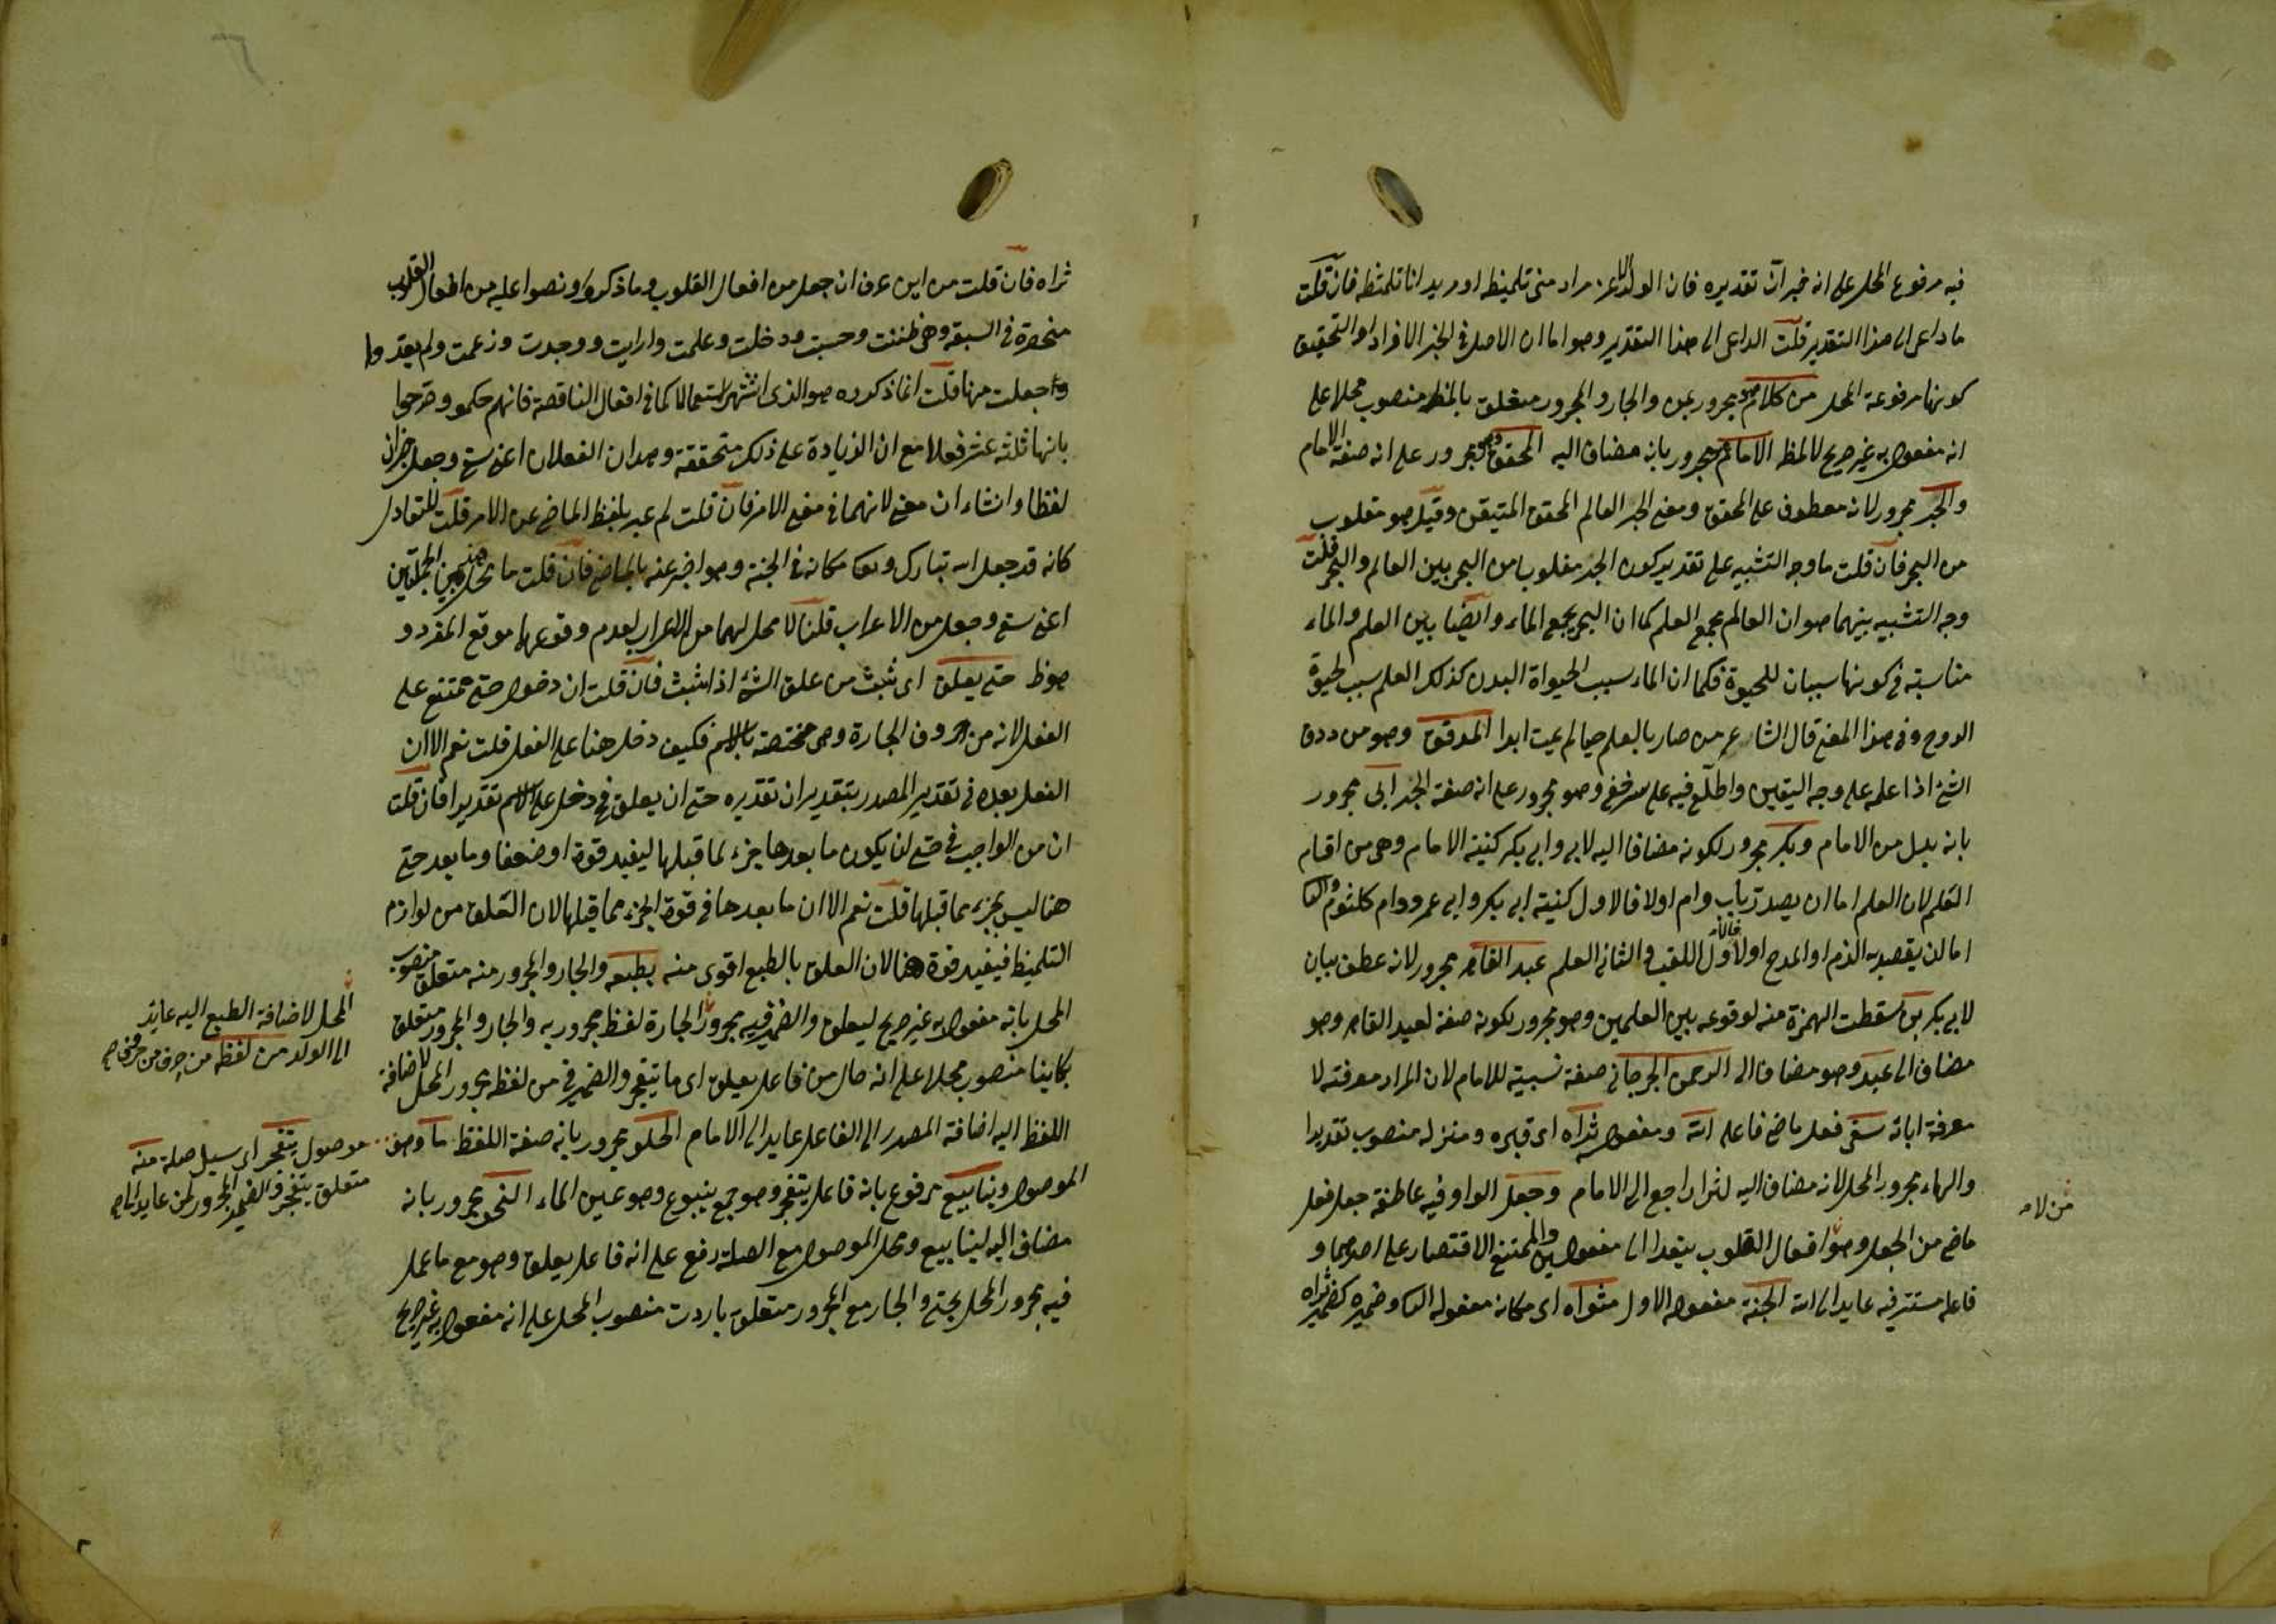 فيه مرفوع المحل على انه خبر ان تقديره فان الولد الاعز مراد منى تلميظه او مريد انا تلمظه فان قلت
ما داعى الى هذا التقدير قلت الداعى الى هذا التقدير وهو اما ان الاصل فى الخبر الافراد او التحقيق
كونها مرفوعة المحل من كلام مجرور بمن والجار والمجرور متعلق بالمظ منصوب محلا على
انه مفعول به غير صريح لالمظ الامام مجرور بانه مضاف اليه المحقق وهو مجرور على انه صفة الامام
والحبر مجرور لانه معطوف على المحقق ومعنى الحبر العالم المحقق المتيقن وقيل هو مقلوب
من البحر فان قلت ما وجه التشبيه على تقدير كون الحبر مقلوبا من البحر بين العالم والبحر قلت
وجه التشبيه بينهما هو ان العالم مجمع العلم كما ان البحر مجمع الماء وايضا بين العلم والماء
مناسبة فى كونهما سببان للحيوة فكما ان الماء سبب لحيواة البدن كذلك العلم سبب لحيوة
الروح وفى هذا المعنى قال الشاعر من صار بالعلم حيا لم يمت ابدا المدقق وهو من دقق
الشئ اذا علمه على وجه اليقين واطلع فيه على سر خفى وهو مجرور على انه صفة الحبر ابى مجرور
بانه بدل من الامام وبكر مجرور لكونه مضافا اليه لابى وابى بكر كنية الامام وهى من اقسام
العلم لان العلم اما ان يصدر باب وام اولا فالاول كنية ابى بكر وابى عمرو وام كلثوم والثانى
اما ان يقصد به الذم او المدح اولا فالاول اللقب والثانى العلم عبد القاهر مجرور لانه عطف بيان
لابى بكر بن سقطت الهمزة منه لوقوعه بين العلمين وهو مجرور لكونه صفة لعبد القاهر وهو
مضاف الى عبد وهو مضاف الى الرحمن الجرجانى صفة نسبية للامام لان المراد معرفته لا
معرفة ابائه سقى فعل ماض فاعله الله ومفعوله ثراه اى قبره ومنزله منصوب تقديرا
والهاء مجرور المحل لانه مضاف اليه لثرا راجع الى الامام وجعل الواو فيه عاطفة جعل فعل
ماض من الجعل وهو افعال القلوب يتعدا الى مفعولين والممتنع الاقتصار على احدهما و
فاعله مستتر فيه عايد الى الله الجنة مفعوله الاول مثواه اى مكانه مفعوله الثانى وضميره كضمير ثراه
من لانه
ثراه فان قلت من اين عرف ان جعل من افعال القلوب وما ذكروا ونصوا عليه من افعال القلوب
منحصرة فى السبعة وهى ظننت وحسبت ودخلت وعلمت وارايت ووجدت وزعمت ولم يعدوا
وا جعلت منها قلت انما ذكروه هو الذى اشتهر استعمالا كما فى افعال الناقصة فانهم حكموا وصرحوا
بانها ثلثة عشر فعلا مع ان الزيادة على ذلك متحققة وهذان الفعلان اعنى سقى وجعل خبران
لفظا وانشاءان معنى لانهما فى معنى الامر فان قلت لم عبر بلفظ الماضى عن الامر قلت للتفاءل
كانه قد جعل الله تبارك وتعا مكانه فى الجنة وهو اخبر عنه بالماضى فان قلت ما محل هذين الجملتين
اعنى سقى وجعل من الاعراب قلنا لا محل لهما من الاعراب لعدم وقوعهما موقع المفرد و
هو ظ حتى يعلق اى ثبت من علق الشئ اذا ثبت فان قلت ان دخول حتى ممتنع على
الفعل لانه من الحروف الجارة وهى مختصة بالاسم فكيف دخل هنا على الفعل قلت نعم الا ان
الفعل بعده فى تقدير المصدر بتقدير ان تقديره حتى ان يعلق فح دخل على الاسم تقديرا فان قلت
ان من الواجب فى حتى ان يكون ما بعدها جزء لما قبلها ليفيد قوة او ضعفا وما بعد حتى
هنا ليس بجزء مما قبلها قلت نعم الا ان ما بعدها فى قوة الجزء مما قبلها لان التعلق من لوازم
التلميظ فيفيد قوة هنا لان العلق بالطبع اقوى منه بطبعه والجار والمجرور منه متعلق منصوب
المحل بانه مفعول به غير صريح ليعلق والضمير فيه مجرور الجارة لفظ مجرور به والجار والمجرور متعلق
بكاينا منصوب محلا على انه حال من فاعل يعلق اى ما يتفجر والضمير فى من لفظه مجرور المحل لاضافة
اللفظ اليه اضافة المصدر الى الفاعل عايد الى الامام الحلو مجرور بانه صفة اللفظ ما وهو
الموصول وينابيع مرفوع بانه فاعل يتفجر وهو جمع ينبوع وهو عين الماء النحو مجرور بانه
مضاف اليه لينابيع ومحل الموصول مع الصلة رفع على انه فاعل يعلق وهو مع ما عمل
فيه مجرور المحل بحتى والجار مع المجرور متعلق باردت منصوب المحل على انه مفعول به غير صريح
المحل لاضافة الطبع اليه عايد
الى الولد من لفظه من حرف من حروف
موصول يتفجر اى سيل صلة منه
متعلق يتفجر والضمير المجرور لمن عايد الى ما